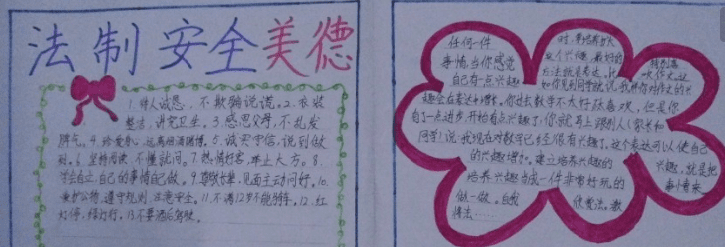 法制安全美德
1.待人诚恳，不欺骗说谎。2.衣装
整洁，讲究卫生。3.感恩父母，不乱发
脾气。4.珍爱身心，远离烟酒赌博。5.诚实守信，说到做
到。6.坚持阅读，不懂就问。7.热情好客，
学会自立，自己的事情自己做。9.尊敬长辈，见面主动问好。10.
爱护公物，遵守规则，注意安全。11.不满12岁不能骑车。12.红
灯停，绿灯行。13.不要酒后驾驶。
任何一件
事情，当你感觉
自己有一点兴趣
时，
这个兴趣，最好的
方法就是表达，比
如你见到同学就说，我
趣会在表达中增长。你过去数学不太好
有了一点进步，开始有点兴趣了，你就马上跟别人（家长和
同学）说：我现在对数学已经很有兴趣了。这个表达可以使自己
的兴趣增加。建立培养兴趣的
兴趣，就是把
培养兴趣当成一件非常好玩的
事情来
做一做。